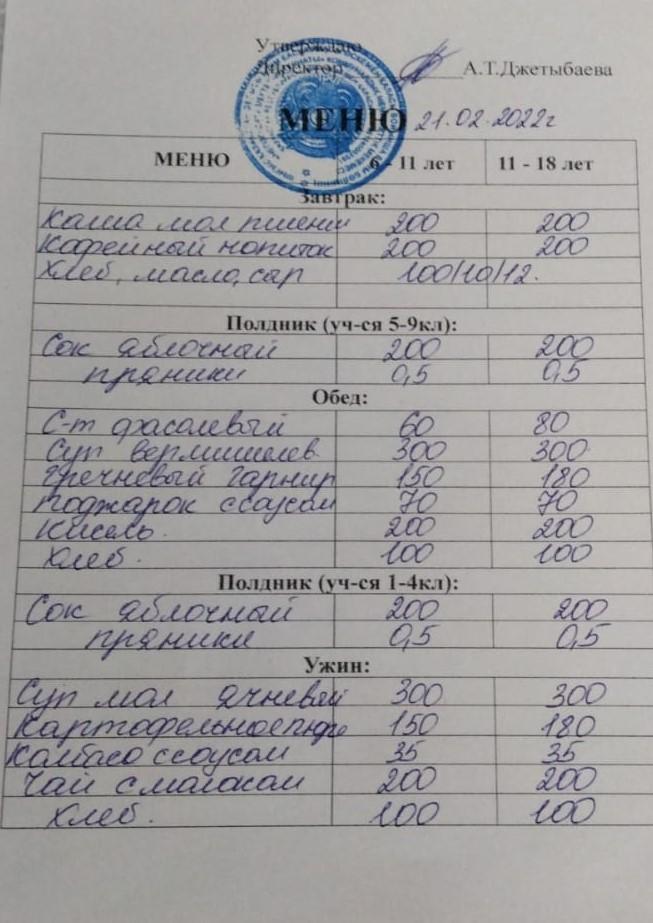 Утверждаю
Директор А.Т.Джетыбаева
МЕНЮ 21.02.2022г
МЕНЮ 6 - 11 лет 11 - 18 лет
Завтрак:
Каша мол пшенн 200 200
Кофейный напиток 200 200
Хлеб, масло, сыр 100/10/12.
Полдник (уч-ся 5-9кл):
Сок яблочный 200 200
пряники 0,5 0,5
Обед:
С-т фасолевый 60 80
Суп вермишелев. 300 300
Гречневый гарнир 150 180
Поджарок ссоусом 70 70
Кисель. 200 200
Хлеб. 100 100
Полдник (уч-ся 1-4кл):
Сок яблочный 200 200
пряники 0,5 0,5
Ужин:
Суп мол ячневый 300 300
Картофельное пюре 150 180
Колбаса ссоусом 35 35
Чай смолоком 200 200
Хлеб. 100 100